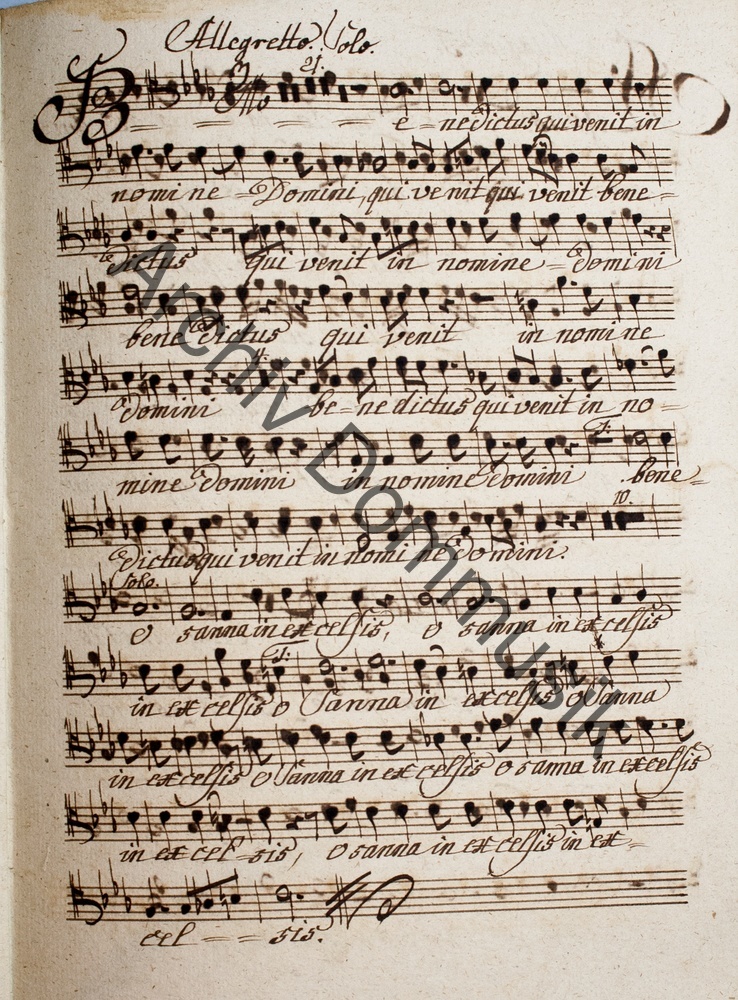 Allegretto. Solo.
21.
Be = = = = = nedictus qui venit in
nomine = Domini, qui venit qui venit bene =
dictus qui venit in nomine = Domini
bene dictus qui venit in nomine
4.
Domini be = ne dictus qui venit in no =
1.
mine Domini in nomine Domini bene =
10.
dictus qui venit in nomine Domini.
Solo.
O sanna in excelsis, O sanna in excelsis
1.
in excelsis O Sanna in excelsis O Sanna
in excelsis O Sanna in excelsis O sanna in excelsis
in excel = sis, O sanna in excelsis in ex =
cel = = sis.
Archiv Dommusik